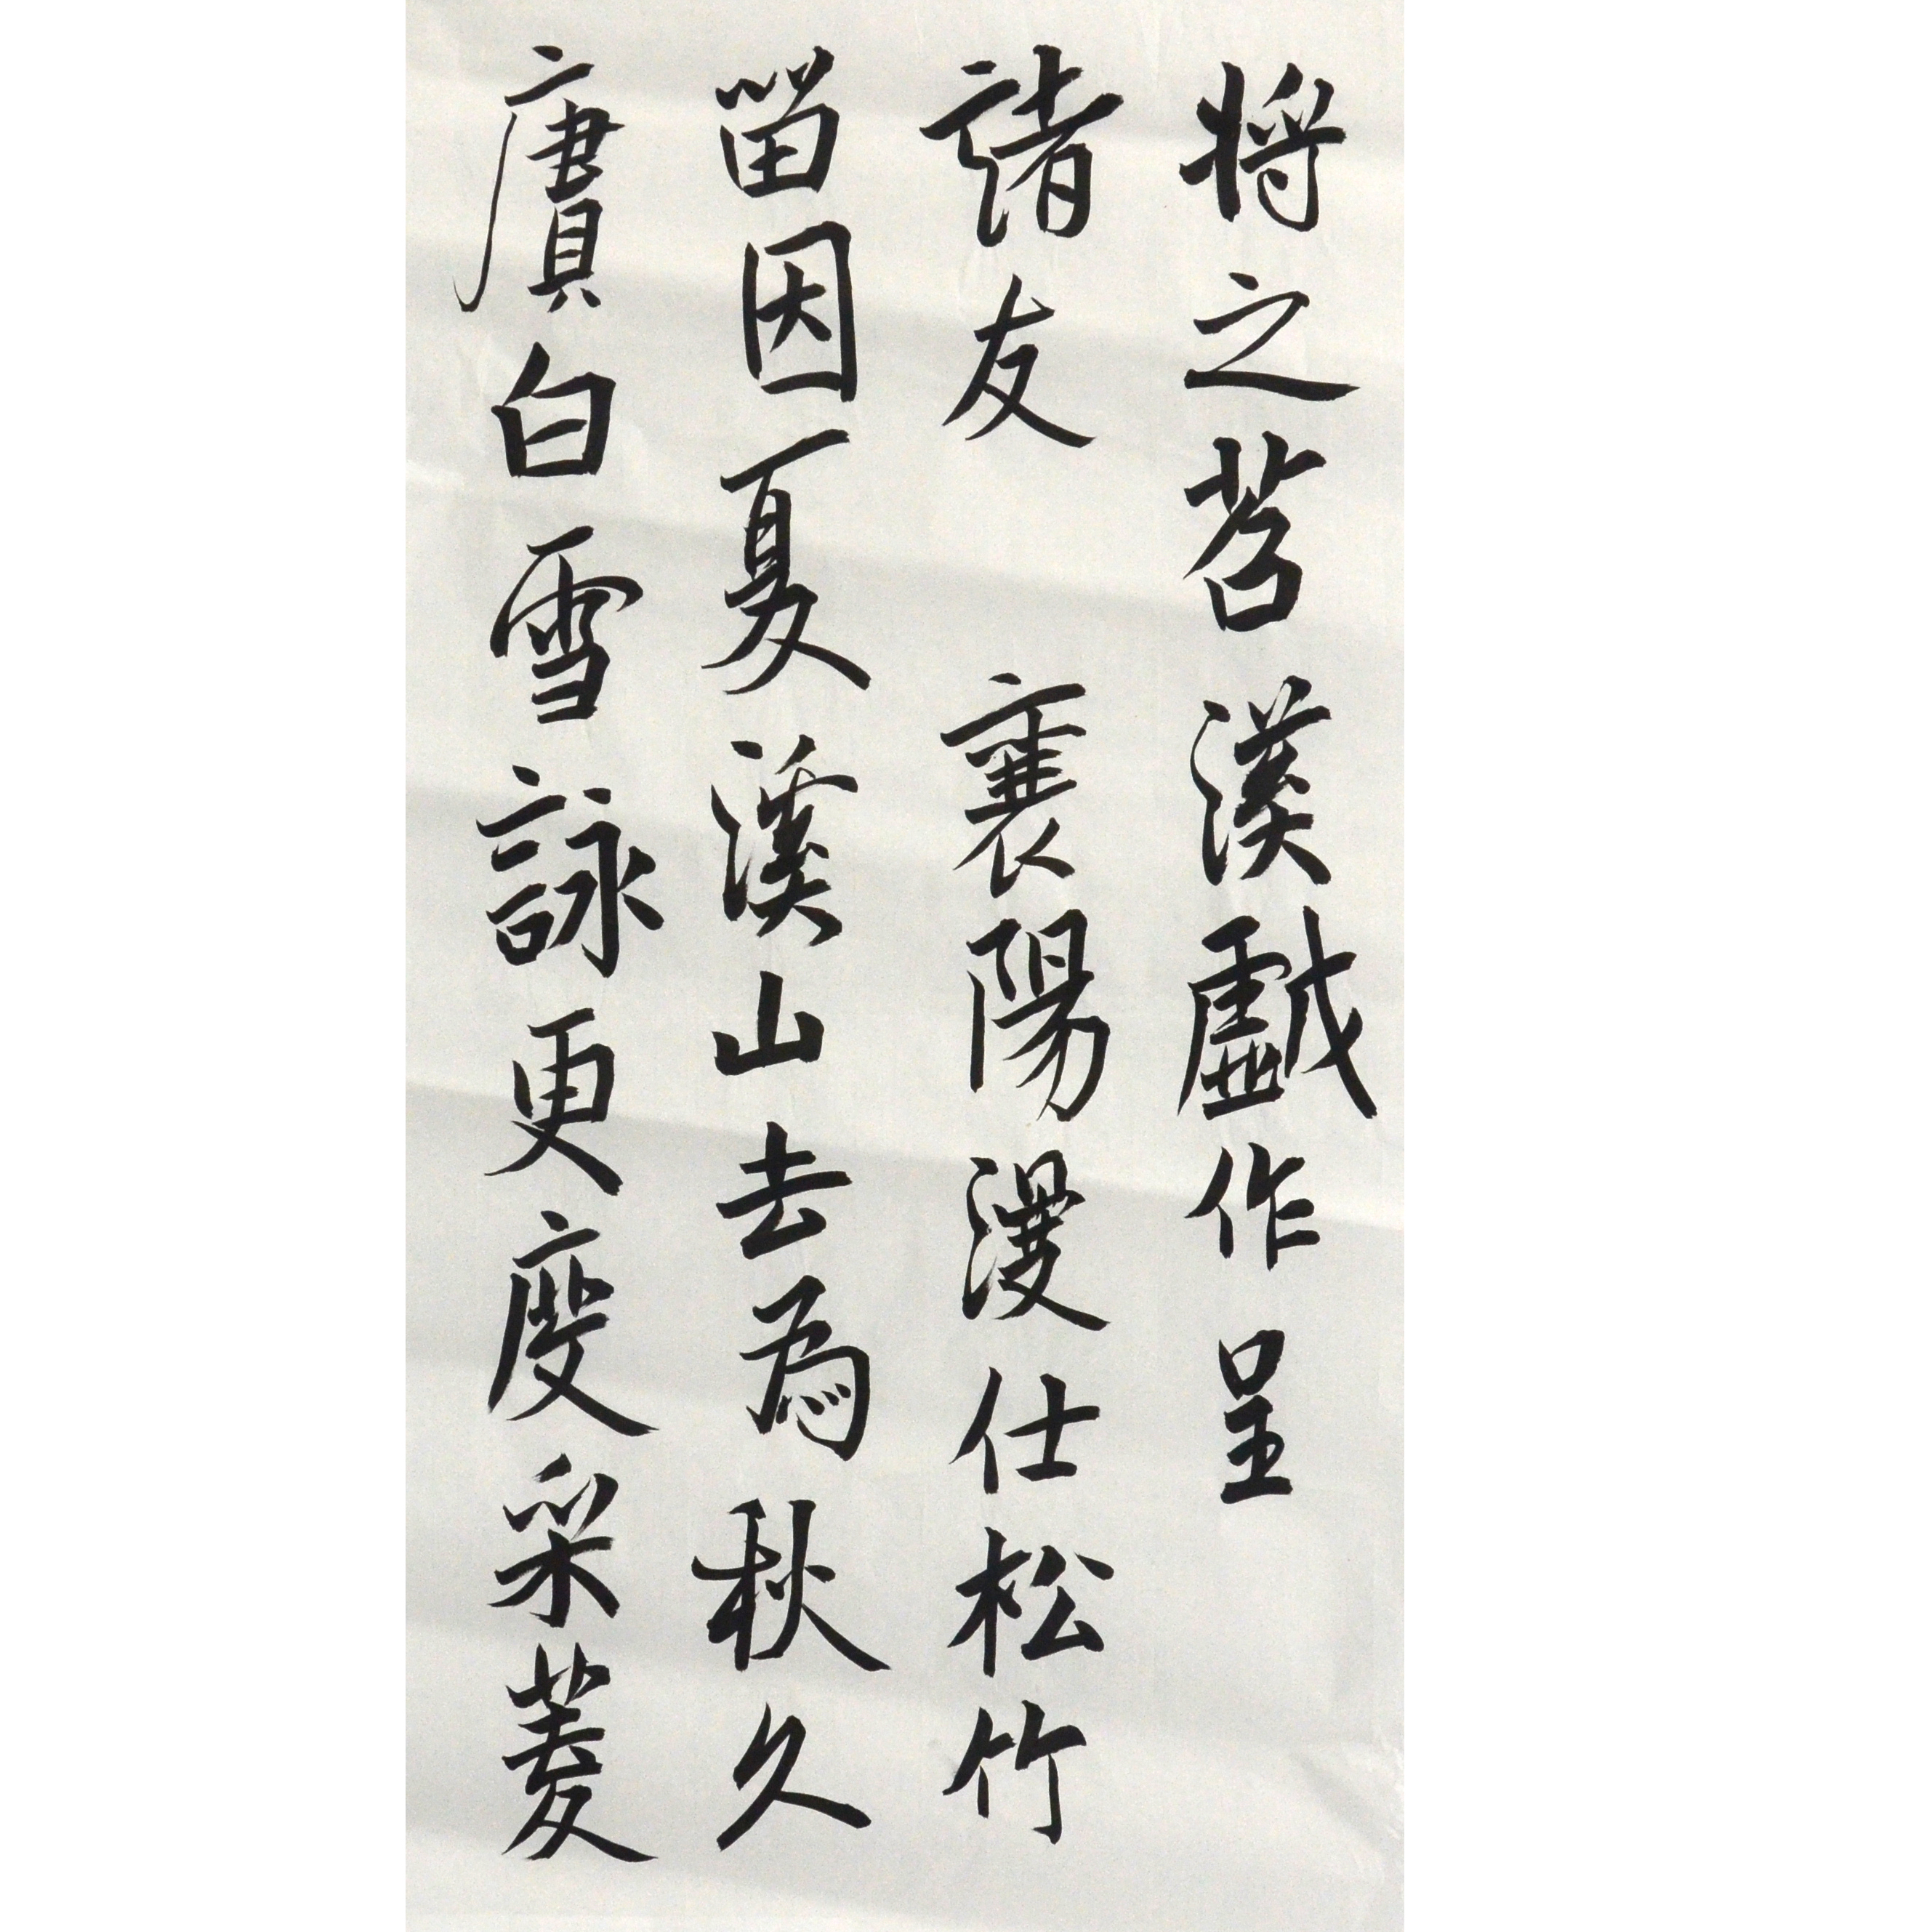 將之苕溪戲作呈
諸友 襄陽漫仕松竹
留因夏溪山去為秋久
賡白雪詠更度采菱